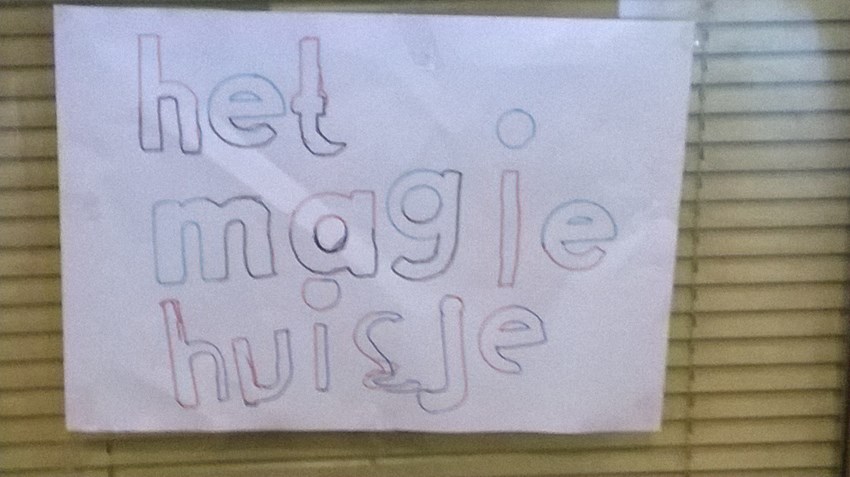 het
magie
huisje